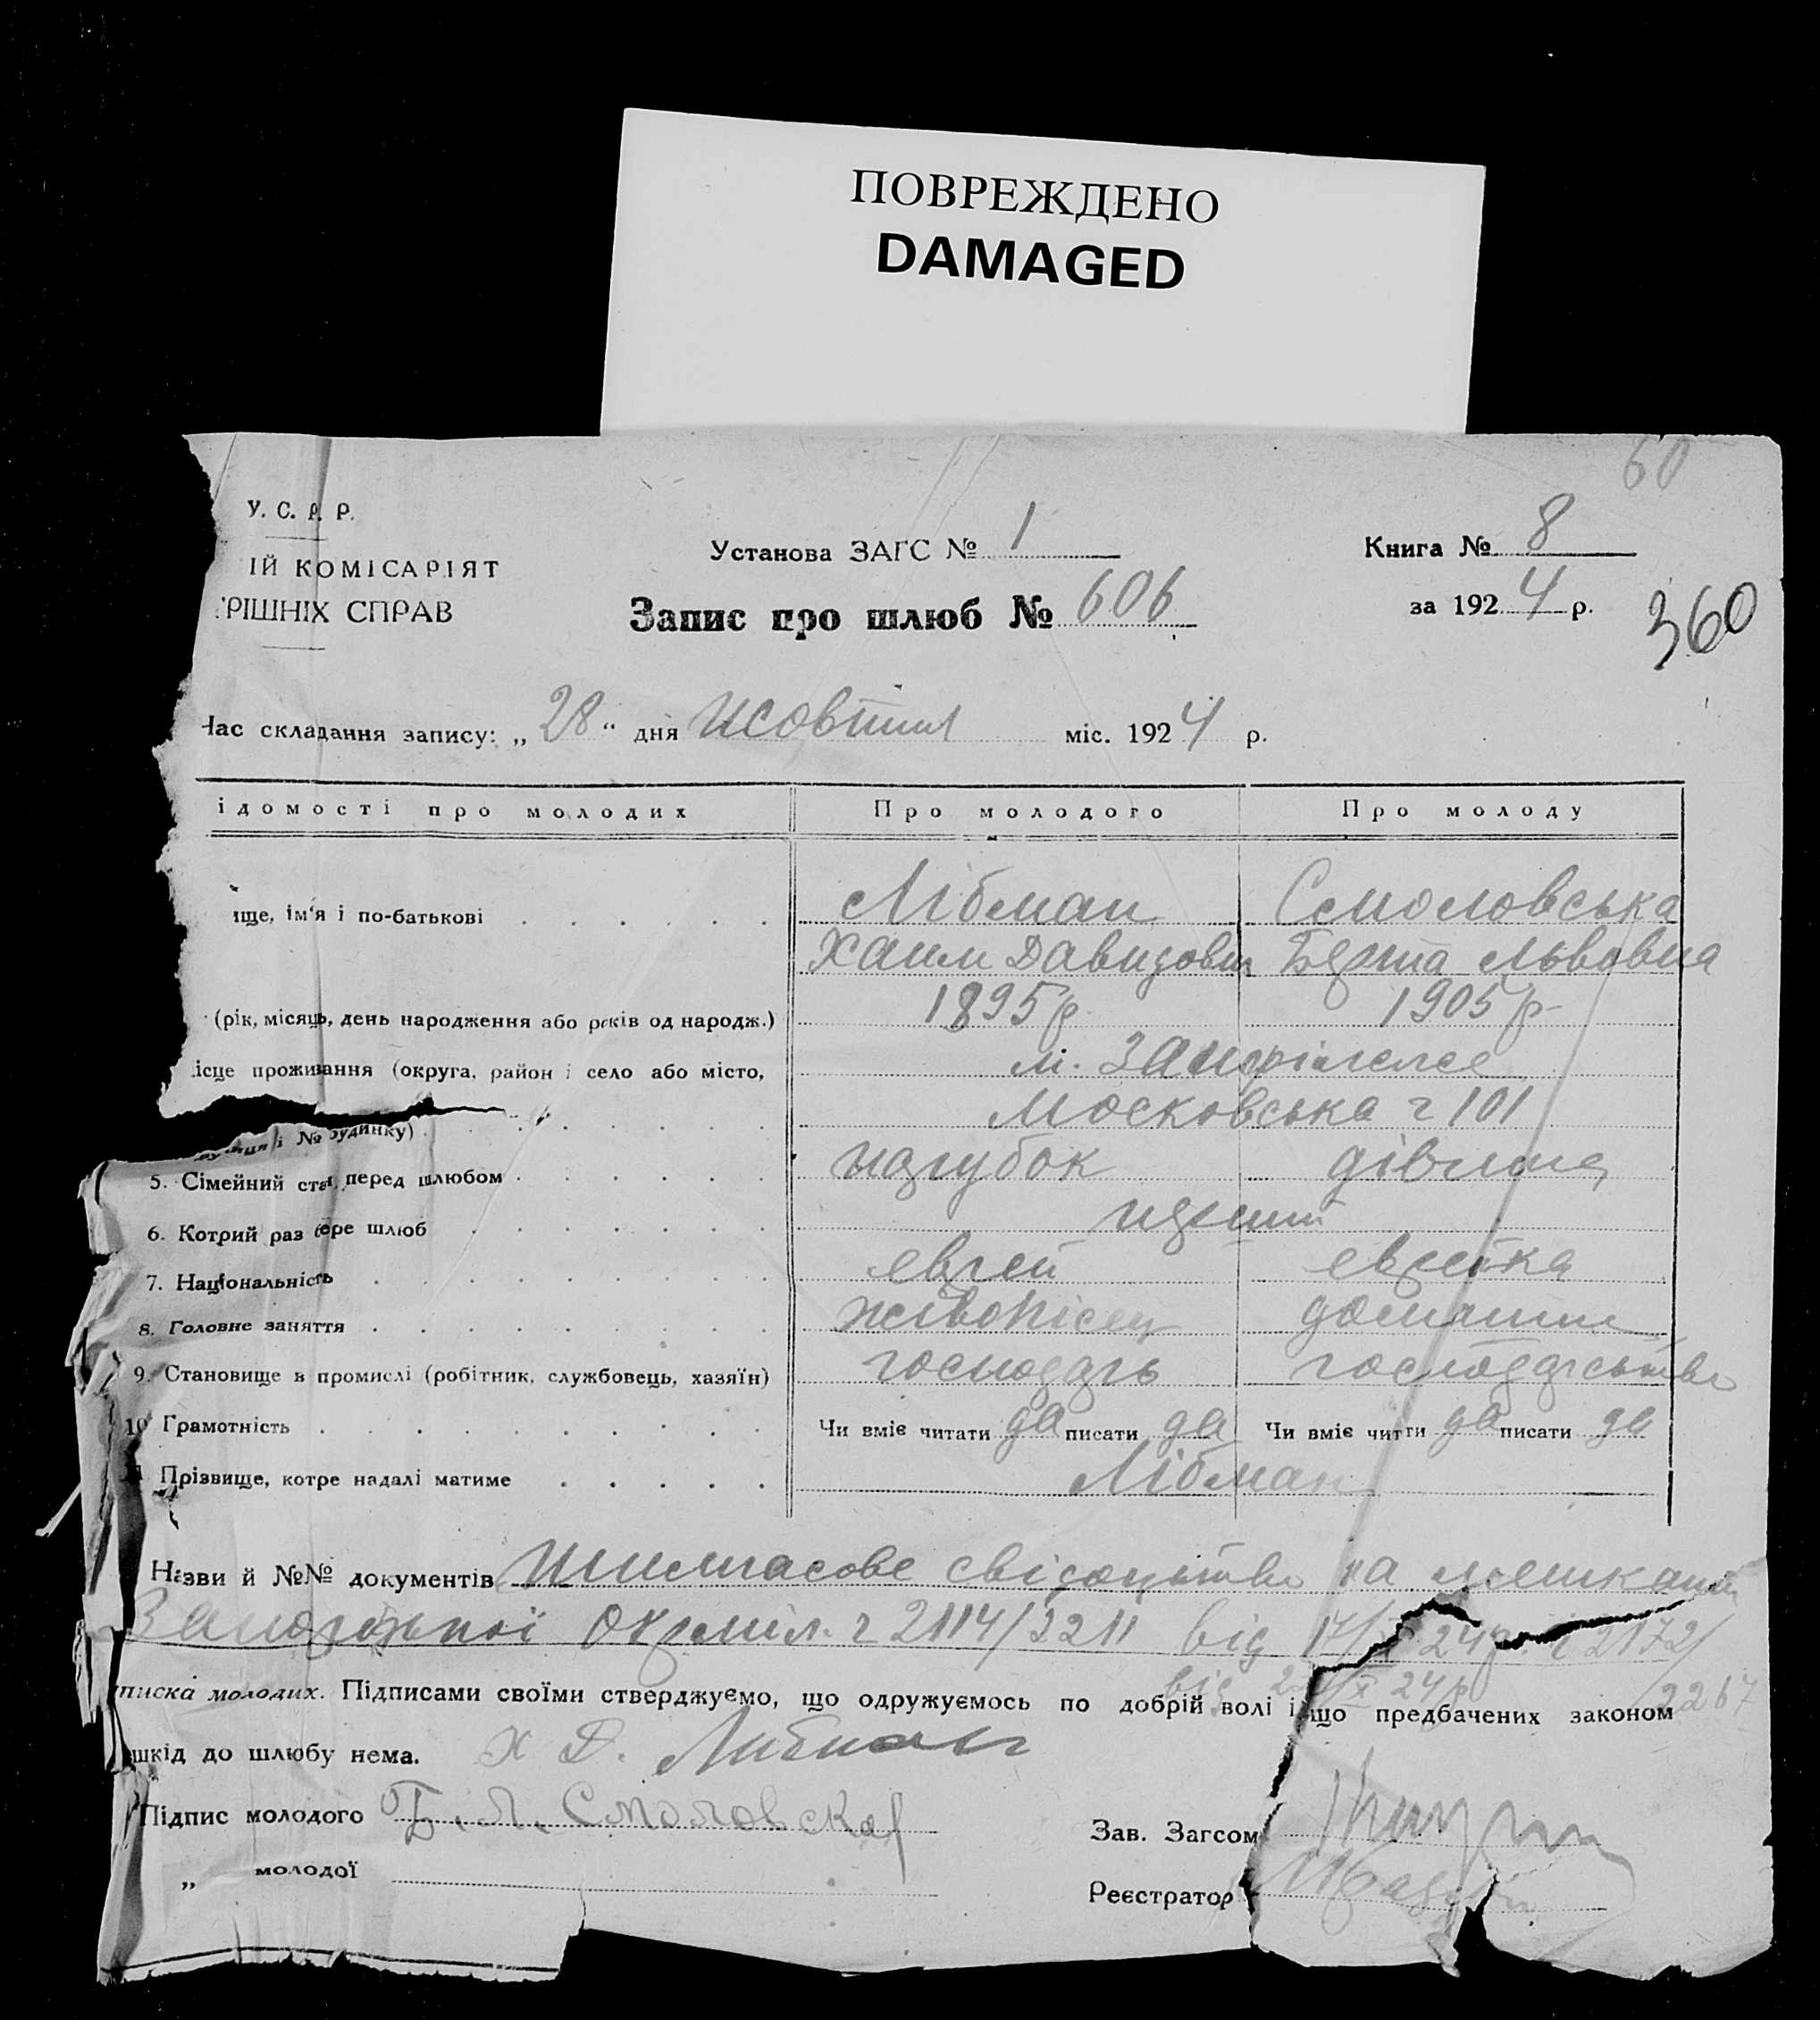 ПОВРЕЖДЕНО
DAMAGED
60
У. С. Р. Р.
ІЙ КОМІСАРІЯТ
РІШНІХ СПРАВ
Установа ЗАГС № 1
Книга № 8
Запис про шлюб № 606
за 1924 р.
360
Час складання запису: „28“ дня жовтня міс. 1924 р.
ідомості про молодих
Про молодого
Про молоду
ще, ім'я і по-батькові
Лібман
Смоловська
Хаим Давидович
Берта Львовна
(рік, місяць, день народження або років од народж.)
1895 р
1905 р
ісце проживання (округа, район і село або місто,
м. Запоріжжє
Московська ч 101
вулиця і № будинку)
5. Сімейний стан перед шлюбом
парубок
дівчина
6. Котрий раз бере шлюб
перший
7. Національність
еврей
еврейка
8. Головне заняття
живопісец
домашнє
9. Становище в промислі (робітник, службовець, хазяїн)
господарь
господарство
10 Грамотність
Чи вміє читати да писати да
Чи вміє читати да писати да
11 Прізвище, котре надалі матиме
Лібман
Назви й №№ документів Тимчасове свідоцтво на мешкання
Запорізької Окрміл. ч 2114/2211 від 17/X 24р. і 2172/
2267
від X 24р
писка молодих. Підписами своїми стверджуємо, що одружуємось по добрій волі і що предбачених законом
шкід до шлюбу нема.
Х Д. Либман
Підпис молодого Б. Л. Смоловская
„ молодої
Зав. Загсом
Реєстратор